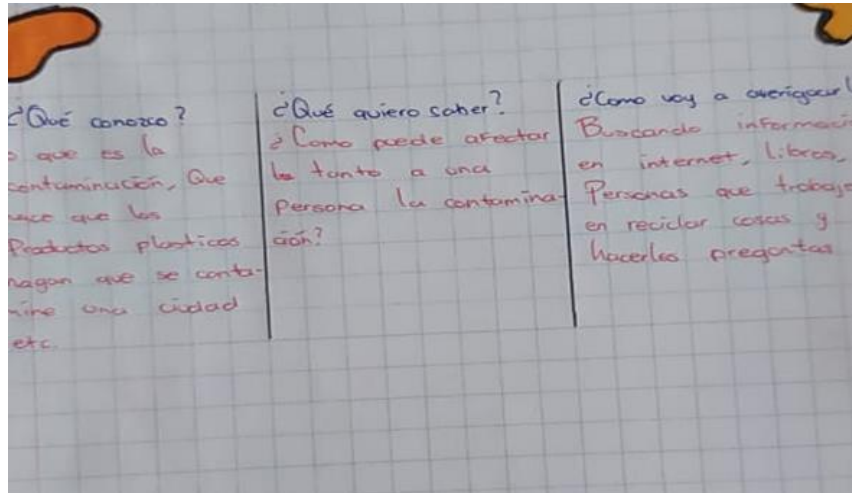 ¿Qué conozco?
que es la
contaminación, Que
hace que los
Productos plasticos
hagan que se conta-
mine una ciudad
etc.
¿Qué quiero saber?
¿Como puede afectar
tanto a una
persona la contamina-
ción?
¿Como voy a averiguar
Buscando informaci
en internet, libros,
Personas que trabaje
en reciclar cosas y
hacerles preguntas